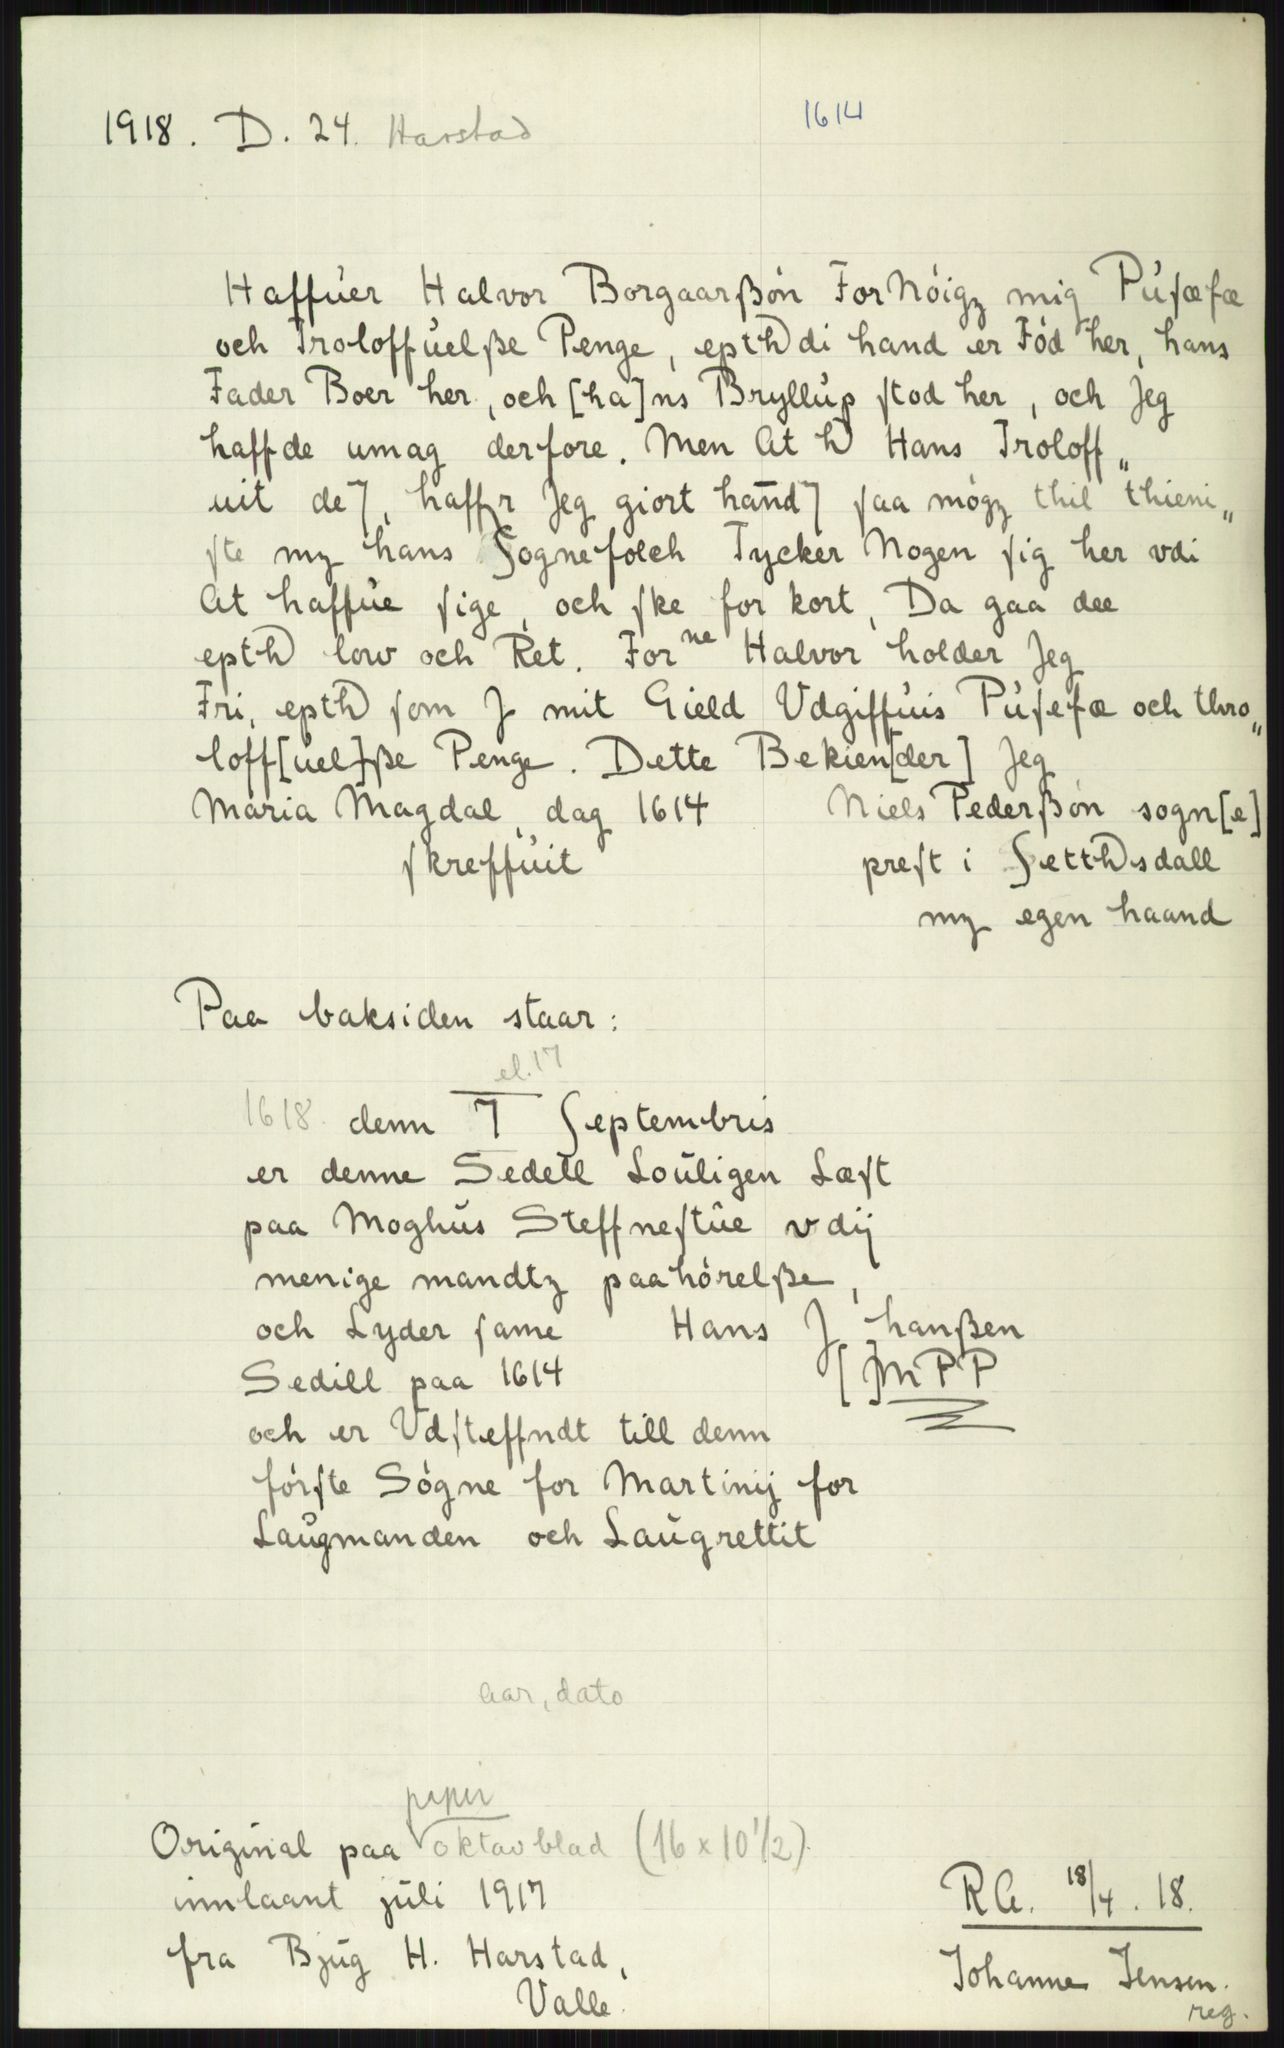 1918. D. 24. Harstad 1614
Haffuer Halvor Borgaarßón ForNóigz mig Púſæfæ
och Troloffúelße Penge, epthdi hand er Fód her, hans
Fader Boer her, och [ha]ns Bryllúp ſtod her, och Jeg
haffde umag derfore. Men At h Hans Troloff„
uit de7, haffr Jeg giort hand7 ſaa mógz thil thieni„
ſte mz hans Sognefolch Tycker Nogen ſig her vdi
At haffúe ſige, och ſke for kort, Da gaa dee
epth low och Ret. For ne Halvor holder Jeg
Fri, epth ſom J mit Gield Vdgiffúis Púſefæ och thro„
loff[úel]ße Penge. Dette Bekien[der] Jeg
Maria Magdal, dag 1614 Niels Pederßón sogn[e]
ſkreffúit preſt i Setthsdall
mz egen haand
Paa baksiden staar:
el. 17
1618 denn 7 Septembris
er denne Sedell Loúligen Læſt
paa Moghús Steffneſtúe vdij
menige mandtz paahórelße,
och Lyder ſame Hans J hanßen
Sedill paa 1614 [ ]MPP
och er Vdſteffndt till denn
fórſte Sógne for Martinij for
Laúgmanden och Laúgrettit
Aar, dato
papir
Original paa oktavblad (16 x 10 1/2)
innlaant júli 1917
fra Bjúg H. Harstad,
Valle.
R.A. 18/4. 18.
Johanne Jensen.
reg.